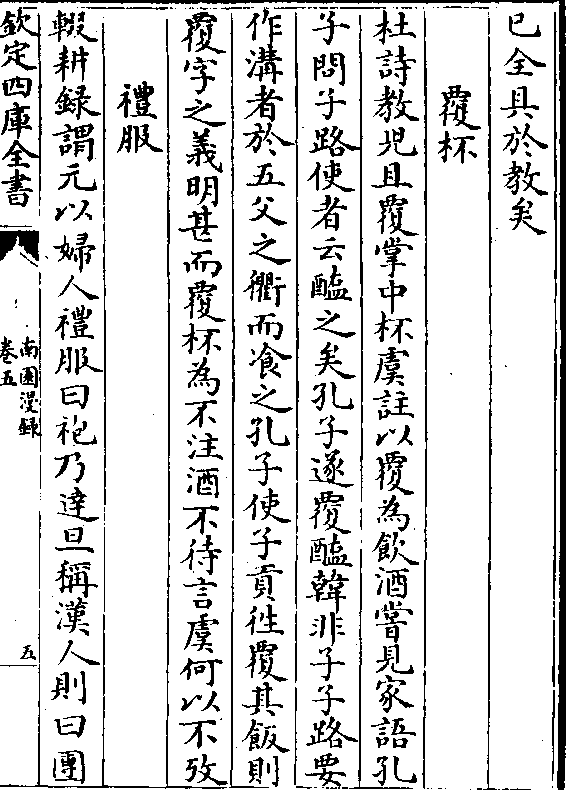 已全具於教矣
覆杯
杜詩教兒且覆掌中杯虞註以覆為飲酒嘗見家語孔
子問子路使者云醢之矣孔子遂覆醢韓非子子路要
作溝者於五父之衢而飡之孔子使子貢徃覆其飯則
覆字之義明甚而覆杯為不注酒不待言虞何以不攷
禮服
輟耕録謂元以婦人禮服曰袍乃達旦稱漢人則曰團
欽定四庫全書
南園漫録
卷五
五